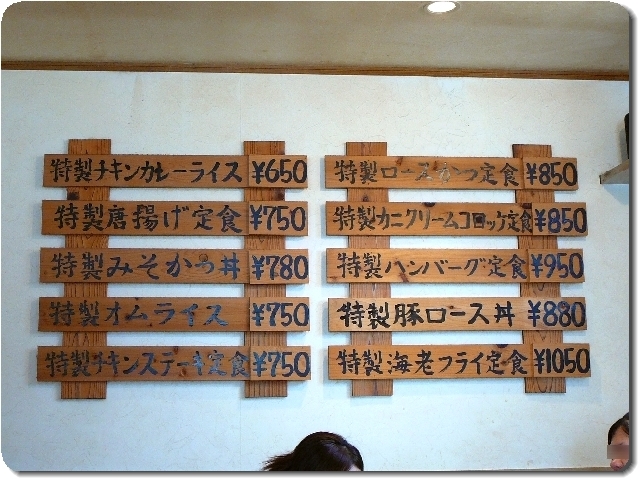 特製チキンカレーライス ¥650
特製唐揚げ定食 ¥750
特製みそかつ丼 ¥780
特製オムライス ¥750
特製チキンステーキ定食 ¥750
特製ロースかつ定食 ¥850
特製カニクリームコロッケ定食 ¥850
特製ハンバーグ定食 ¥950
特製豚ロース丼 ¥880
特製海老フライ定食 ¥1050